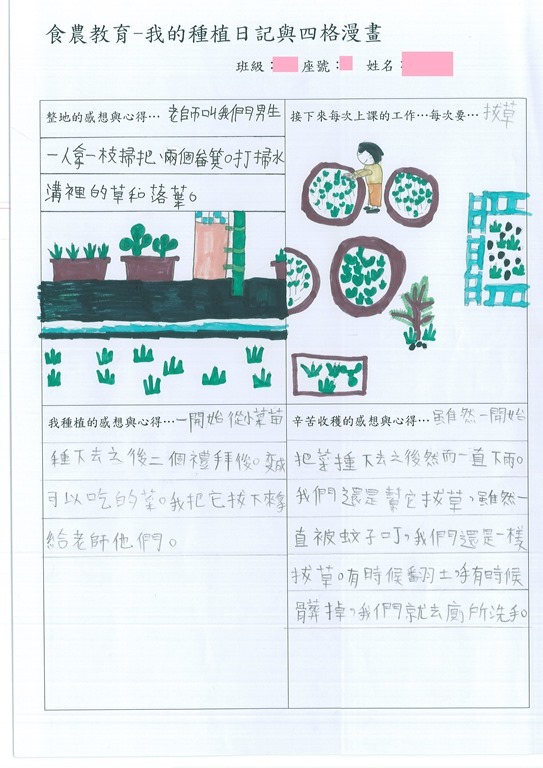 食農教育-我的種植日記與四格漫畫
班級： 座號： 姓名：
整地的感想與心得… 老師叫我們男生
一人拿一枝掃把、兩個畚箕。打掃水
溝裡的草和落葉。
接下來每次上課的工作…每次要… 拔草
我種植的感想與心得…一開始從小菜苗
種下去之後二個禮拜後。變成
可以吃的菜。我把它拔下來拿
給老師他們。
辛苦收穫的感想與心得…雖然一開始
把菜種下去之後然而一直下雨。
我們還是幫它拔草，雖然一
直被蚊子叮，我們還是一樣
拔草。有時候翻土，手有時候
髒掉，我們就去廁所洗手。